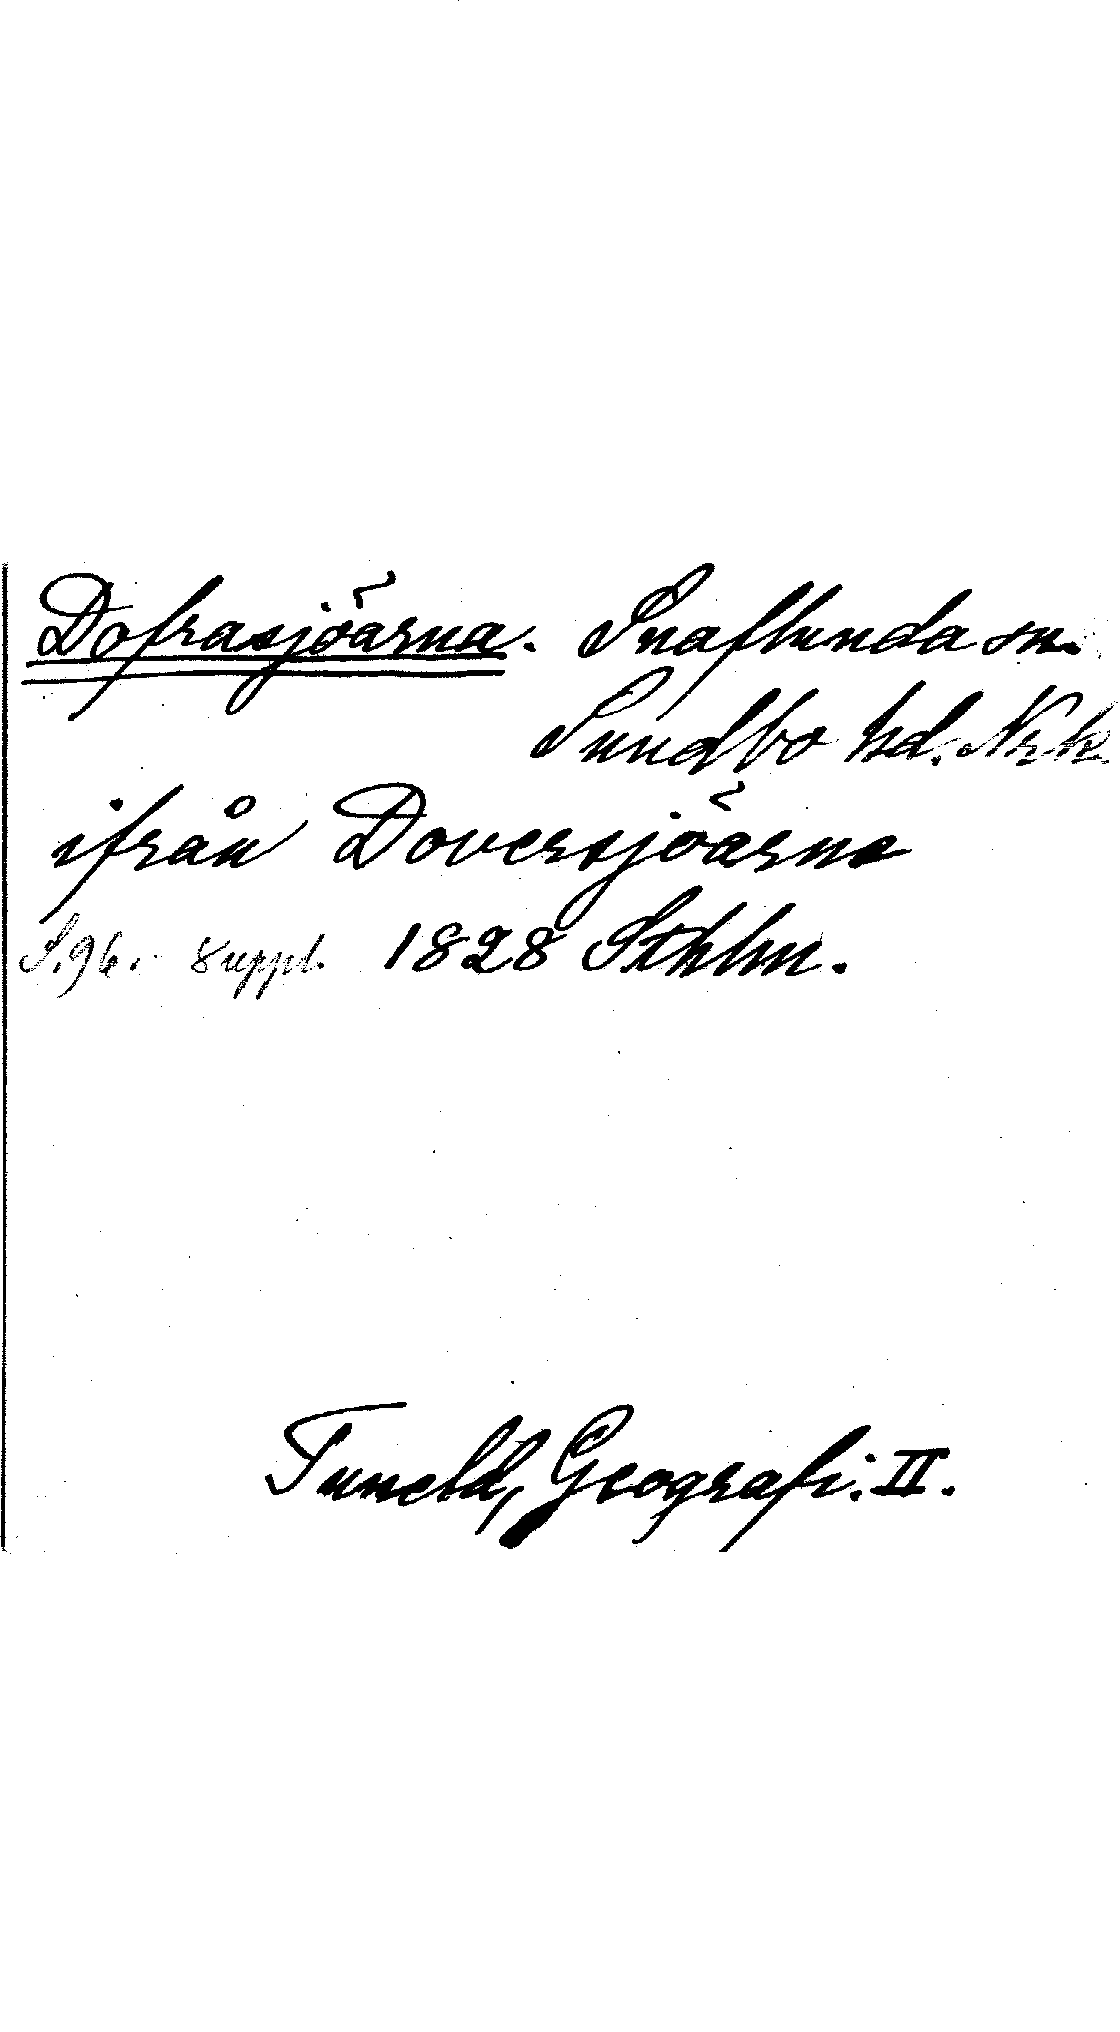 Dofrasjöarna. Snaflunda sn.
Sundbo hd. Nrk.
ifrån Doversjöarna
S. 96. suppl. 1828 Sthlm.
Tuneld, Geografi. II.